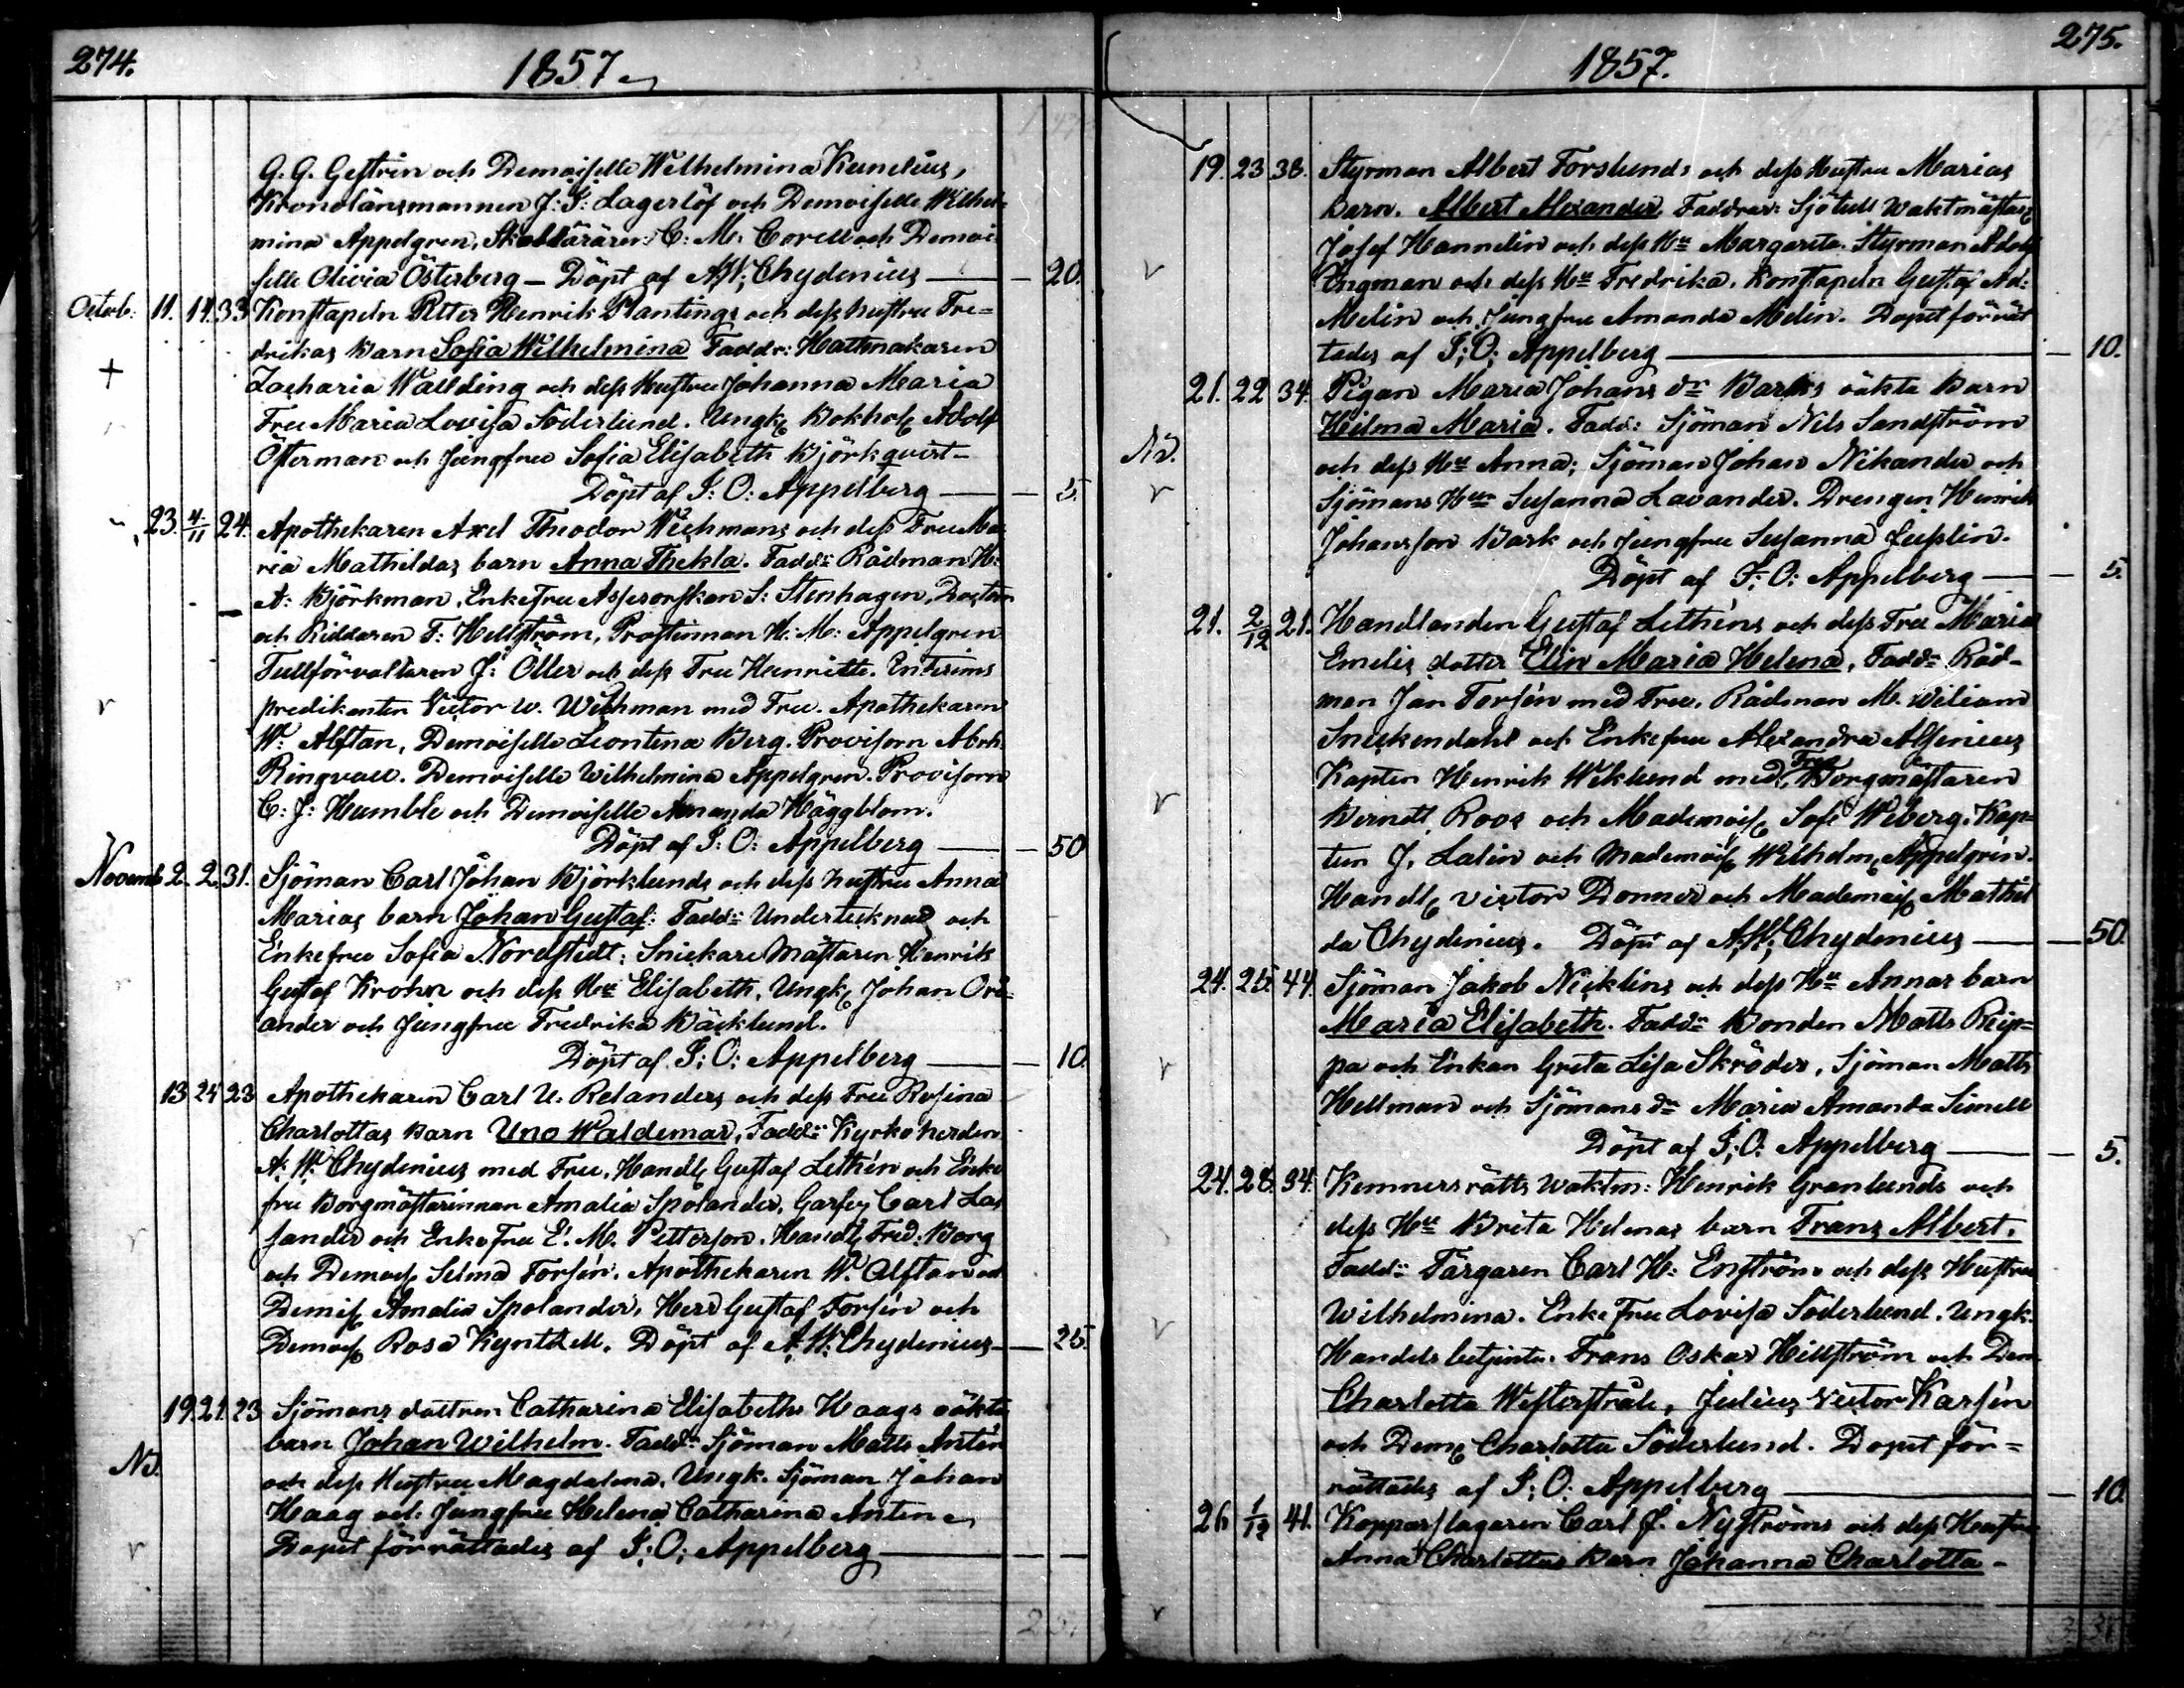 274.
1857
G. G. Gestrin och Demoiselle Wilhelmina Kumlius,
Kronolänsmannen J: G: Lagerlöf och Demoiselle Wilhel-
mina Appelgren, Skollärären C: M: Corell och Demoi-
selle Olivia Österberg – Döpt af A.W. Chydenius — 20.
Octob: 11. 14. 33 Konstapeln Petter Henrik Plantings och dess hustru Fre=
drikas Barn Sofia Wilhelmina Faddr: Hattmakaren
+ Zacharia Wallding och dess Hustru Johanna Maria
Fru Maria Lovisa Söderlund. Ungk. Bokhol. Adolf
Österman och Jungfru Sofia Elisabeth Björkqvist –
Döpt af I: O: Appelberg — 5.
23. 4/11 24. Apothekaren Axel Theodor Wichmans och dess Fru Ma-
ria Mathildas barn Anna Thekla. Fadd: Rådman H:
A: Björkman, Enkefru Assesorskan S: Stenhagen, Doctorn
och Riddaren F: Hellström, Prostinnan H: M: Appelgren
Tullförvaltaren J: Öller och dess Fru Henriette. Enterims
v predikanten Victor W. Wichman med Fru. Apothekaren
W: Alftan, Demoiselle Leontina Berg. Provisorn Abrh.
Ringvall. Demoiselle Wilhelmina Appelgren. Provisorn
C: J: Humble och Demoiselle Amanda Häggblom.
Döpt af I: O: Appelberg — 50
Novemb 2. 2. 31. Sjöman Carl Johan Björklunds och dess hustru Anna
Marias barn Johan Gustaf: Fadd: Undertecknad och
Enkefru Sofia Nordstedt: Snickare Mästaren Henrik
Gustaf Krohn och dess Hu Elisabeth. Ungk. Johan Ore-
ander och Jungfru Fredrika Bäcklund.
Döpt af I: O: Appelberg — 10.
13 24 23 Apothekaren Carl U: Relanders och dess Fru Rosina
Charlottas Barn Uno Waldemar, Fadd: Kyrkoherden
A: W: Chydenius med Fru, Handl. Gustaf Lethén och Enke
fru Borgmästarinnan Amalia Spolander, Garfv. Carl Las
sander och Enkefru E. M. Petterson. Handl. Fred: Borg
och Demois. Selma Forsén. Apothekaren W: Alftan och
Demis. Amalia Spolander, Herr Gustaf Forsén och
Demois. Rosa Kynthell. Döpt af A.W. Chydenius — 25.
19. 21. 23 Sjömans dottren Catharina Elisabeths Haags oäkta
barn Johan Wilhelm. Fadd: Sjöman Matts Antén
Nd. och dess Hustru Magdalena. Ungk. Sjöman Johan
Haag och Jungfru Helena Catharina Anten
v Dopet förrättades af I: O: Appelberg —
275.
1857.
19. 23 38. Styrman Albert Forslunds och dess Hustru Marias
Barn. Albert Alexander. Faddrar: Sjötull Waktmästare
Josef Hannelin och dess Hu Margareta. Styrman Adolf
v Engman och dess Hu Fredrika. Konstapeln Gustaf Ad:
Melin och Jungfru Amanda Melin. Dopet förrät
tades af I: O: Appelberg — 10.
21. 22 34. Pigan Maria Johans dr Barks oäkta Barn
Hilma Maria. Fadd: Sjöman Nils Sandström
Nd. och dess Hu Anna; Sjöman Johan Nikander och
v Sjömans Hun Susanna Lavander. Drengen Henrik
Johansson Bark och Jungfru Susanna Juslin.
Döpt af I: O: Appelberg — 5.
21. 2/12 21. Handlanden Gustaf Lethéns och dess Fru Maria
Emelis dotter Elin Maria Helena, Fadd: Råd-
man Jan Forsén med Fru. Rådman M. William
Snickendahl och Enkefru Alexandra Alfenius
v Kapten Henrik Wiklund med Fru Borgmästaren
Berndt Roos och Mademois. Sofi Weberg. Kap-
ten J. Lalin och Mademois. Wilhelm. Appelgrén.
Handl. Victor Donner och Mademois. Mathil
da Chydenius. Döpt af A.W. Chydenius — 50.
24. 25. 44. Sjöman Jakob Nicklins och dess Hu Annas barn
Maria Elisabeth. Fadd: Bonden Matts Reip=
v pa och Enkan Greta Lisa Skröder, Sjöman Matts
Hellman och Sjömans dr Maria Amanda Simell
Döpt af I: O: Appelberg — 5.
24. 28. 34. Kemners rätts waktm: Henrik Granlunds och
dess Hu Brita Helenas barn Frans Albert.
Fadd: Färgaren Carl H: Enström och dess Hustru
v Wilhelmina. Enke Fru Lovisa Söderlund. Ungk.
Handelsbetjente. Frans Oskar Hellström och Dem.
Charlotta Westerstråle, Julius Victor Karsén
och Dem. Charlotta Söderlund. Dopet för=
rättades af I: O: Appelberg — 10.
26 1/12 41. Kopparslagaren Carl J. Nyströms och dess Hustru
Anna Charlottas Barn Johanna Charlotta –